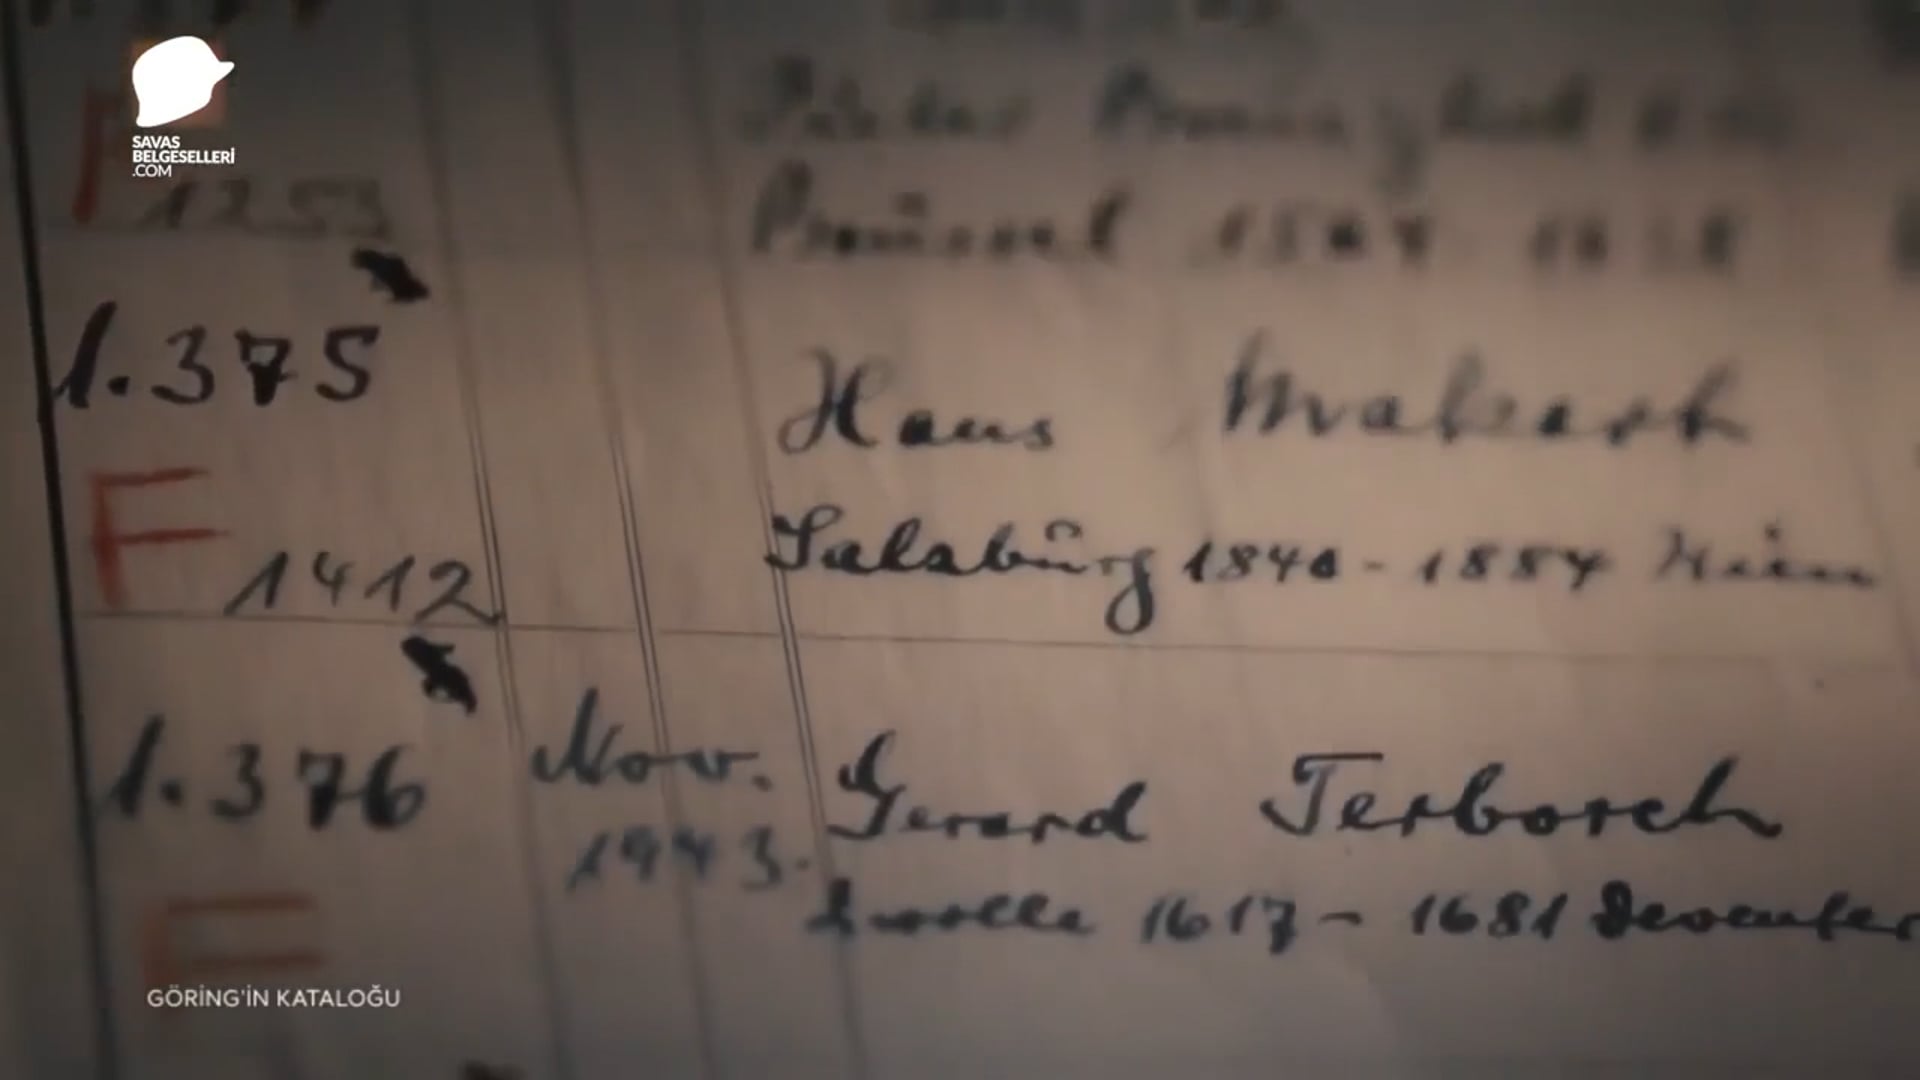 SAVAS
BELGESELLERİ
.COM
F 1253
Brüssel 1564 1638
1.375
Hans Makart
F 1412
Salzbûrg 1840 - 1884 Wien
1.376 Nov. 1943. Gerard Terborch
Zwolle 1617 - 1681 Deventer
F
GÖRİNG'İN KATALOĞU